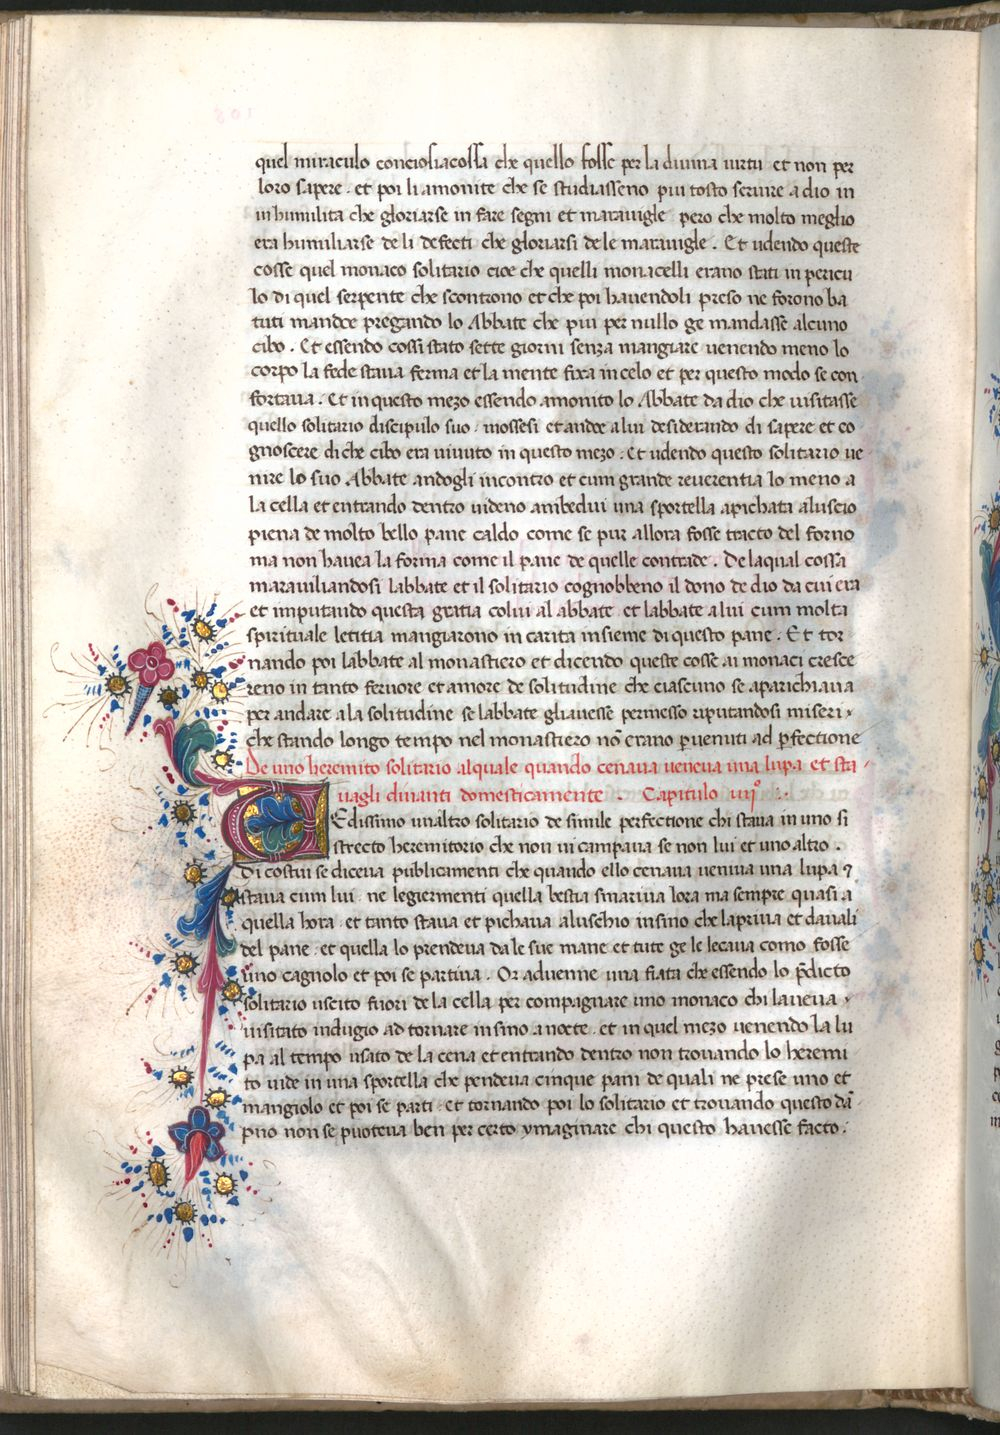 quel miraculo conciosiacossa che quello fosse per la diuina uirtu et non per
loro sapere . et poi li amonite che se studiasseno piu tosto seruire a dio in
in humilita che gloriarse in fare segni et marauigle pero che molto meglio
era humiliarse de li defecti che gloriarsi de le marauigle . Et udendo queste
cosse quel monaco solitario cioe che quelli monacelli erano stati in pericu
lo di quel serpente che scontrono et che poi hauendoli preso ne forono ba
tuti mandoe pregando lo Abbate che piu per nullo ge mandasse alcuno
cibo . Et essendo cossi stato sette giorni senza mangiare uenendo meno lo
corpo la fede staua ferma et la mente fixa in celo et per questo modo se con
fortaua . Et in questo mezo essendo amonito lo Abbate da dio che uisitasse
quello solitario discipulo suo . mossesi et andoe a lui desiderando di sapere et co
gnoscere di che cibo era uiuuto in questo mezo . Et udendo questo solitario ue
nire lo suo Abbate andogli incontro et cum grande reuerentia lo meno a
la cella et entrando dentro uideno ambedui una sportella apichata aluscio
piena de molto bello pane caldo come se pur allora fosse tracto del forno
ma non hauea la forma come il pane de quelle contrade . De laqual cossa
marauiliandosi labbate et il solitario cognobbeno il dono de dio da cui era
et imputando questa gratia colui al abbate et labbate a lui cum molta
spirituale letitia mangiarono in carita insieme di questo pane . Et tor
nando poi labbate al monastiero et dicendo queste cosse ai monaci cresce
reno in tanto feruore et amore de solitudine che ciascuno se aparichiaua
per andare a la solitudine se labbate gliauesse permesso riputandosi miseri
che stando longo tempo nel monastiero nõ erano ꝑuenuti ad ꝑfectione
De uno heremito solitario alquale quando cenaua ueneua una lupa et sta
uagli dinanti domesticamente . Capitulo iiijº
UEdissimo unaltro solitario de simile perfectione chi staua in uno si
strecto heremitorio che non in campaua se non lui et uno altro .
Di costui se diceua publicamenti che quando ello cenaua ueniua una lupa ⁊
staua cum lui . ne legiermenti quella bestia smariua lora ma sempre quasi a
quella hora . et tanto staua et pichaua aluschio insino che lapriua et dauali
del pane . et quella lo prendeua da le sue mane et tute ge le lecaua como fosse
uno cagnolo et poi se partiua . Or aduenne una fiata che essendo lo p̃dicto
solitario uscito fuori de la cella per compagnare uno monaco chi laueua
uisitato indugio ad tornare insino a nocte . et in quel mezo uenendo la lu
pa al tempo usato de la cena et entrando dentro non trouando lo heremi
to uide in una sportella che pendeua cinque pani de quali ne prese uno et
mangiolo et poi se parti . et tornando poi lo solitario et trouando questo dã
pno non se puoteua ben per certo ymaginare chi questo hauesse facto .